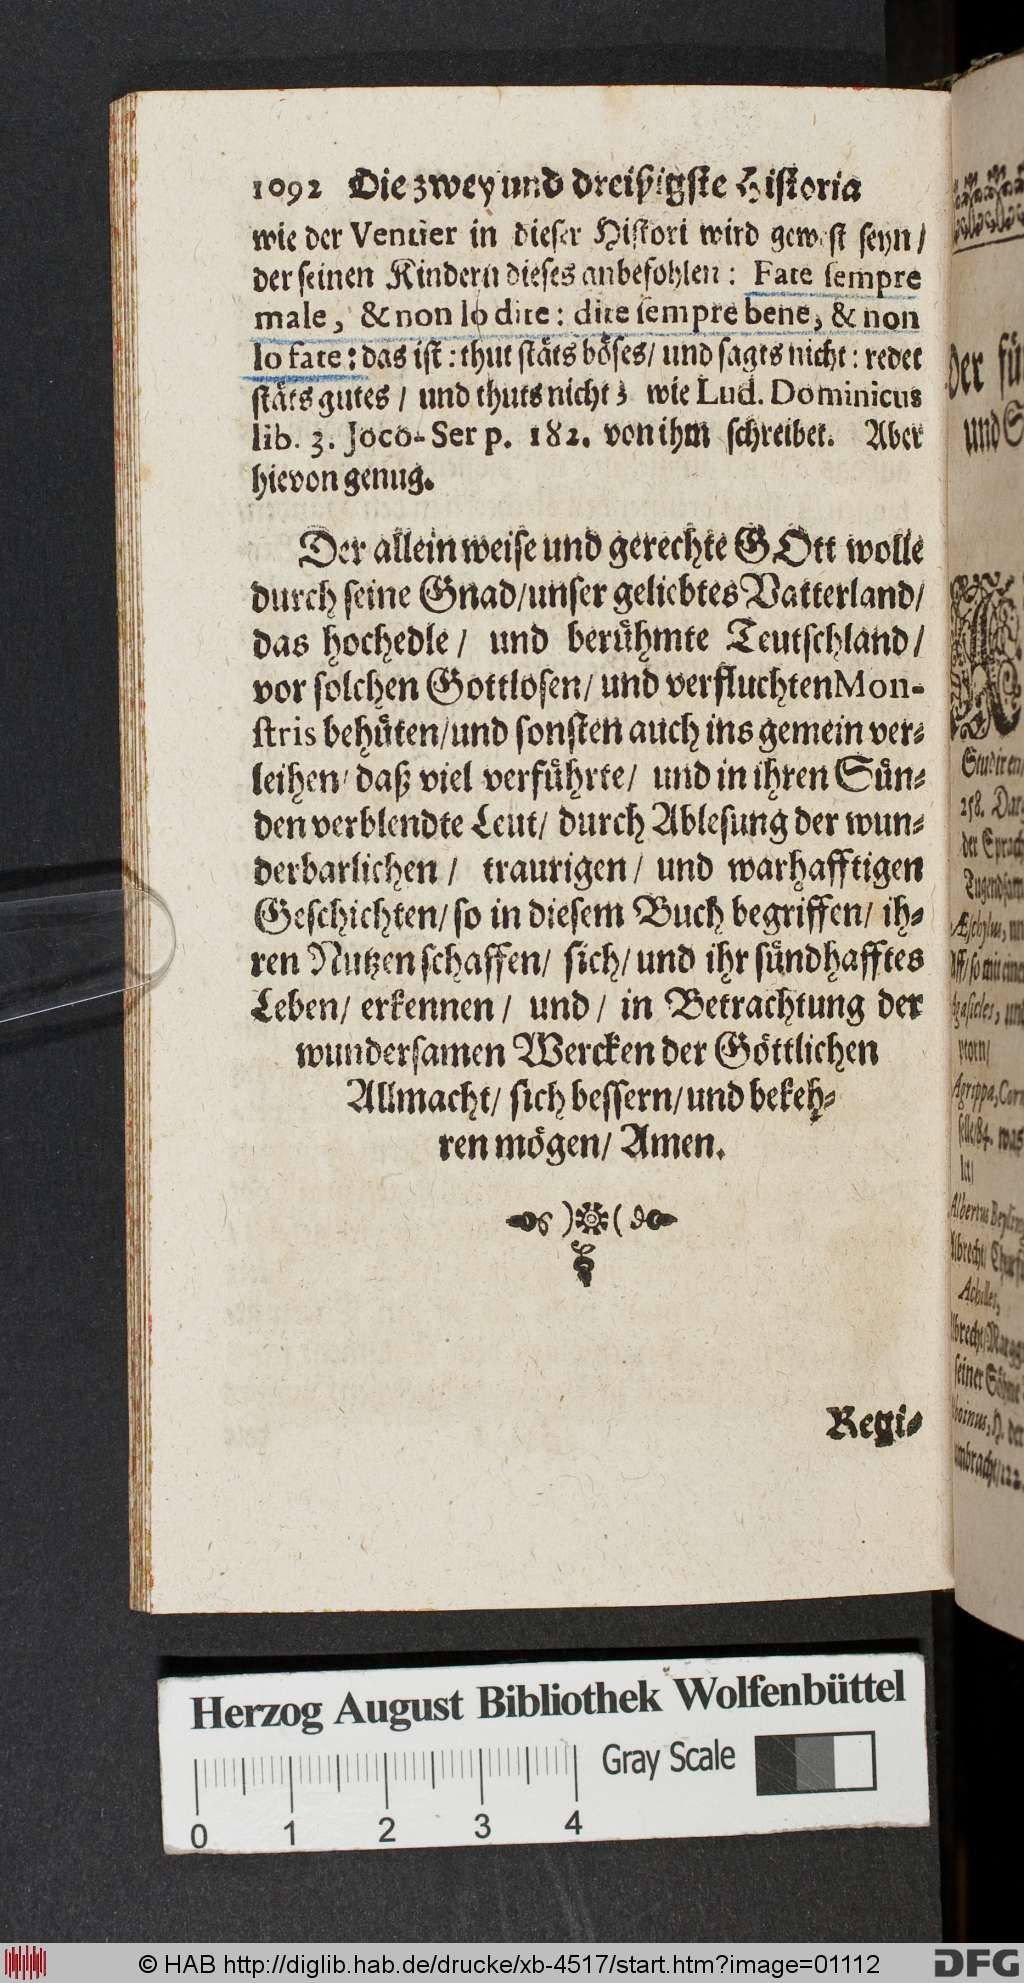 1092 Die zwey und dreißigste Historia
wie der Venuer in dieser Histori wird gewest seyn /
der seinen Kindern dieses anbefohlen : Fate sempre
male, & non lo dite : dite sempre bene, & non
lo fate : das ist : thut stäts böses / und sagts nicht : redet
stäts gutes / und thuts nicht ; wie Lud. Dominicus
lib. 3. Joco-Ser p. 182. von ihm schreibet. Aber
hievon genug.
Der allein weise und gerechte GOtt wolle
durch seine Gnad / unser geliebtes Vatterland /
das hochedle / und berühmte Teutschland /
vor solchen Gottlosen / und verfluchten Mon-
stris behüten / und sonsten auch ins gemein ver-
leihen / daß viel verführte / und in ihren Sün-
den verblendte Leut / durch Ablesung der wun-
derbarlichen / traurigen / und warhafftigen
Geschichten / so in diesem Buch begriffen / ih-
ren Nutzen schaffen / sich / und ihr sündhafftes
Leben / erkennen / und / in Betrachtung der
wundersamen Wercken der Göttlichen
Allmacht / sich bessern / und bekeh-
ren mögen / Amen.
Regi-
Der fü
und S
Studiren
258. Dar
der Sprach
Tugendsam
Æschylus, un
Aff / so mit eine
Agasicles, und
Agrippa, Corn
selle / 84. was
let /
Albertus Beyling
Albrecht / Churfü
Achilles,
Albrecht / Margg
seiner Söhne
Alboinus, H. der
Herzog August Bibliothek Wolfenbüttel
Gray Scale
0 1 2 3 4
© HAB http://diglib.hab.de/drucke/xb-4517/start.htm?image=01112
DFG